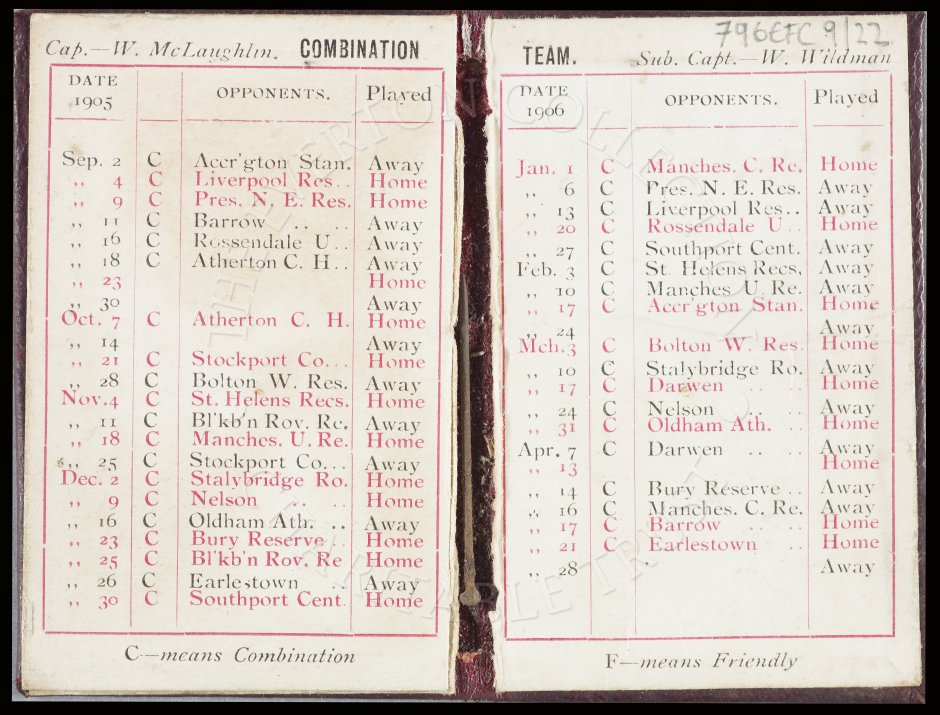 Cap.—W. McLaughlin. COMBINATION
DATE 1905 OPPONENTS. Played
Sep. 2 C Accr'gton Stan. Away
,, 4 C Liverpool Res.. Home
,, 9 C Pres. N. E. Res. Home
,, 11 C Barrow .. .. Away
,, 16 C Rossendale U.. Away
,, 18 C Atherton C. H.. Away
,, 23 Home
,, 30 Away
Oct. 7 C Atherton C. H. Home
,, 14 Away
,, 21 C Stockport Co... Home
,, 28 C Bolton W. Res. Away
Nov. 4 C St. Helens Recs. Home
,, 11 C Bl'kb'n Rov. Re. Away
,, 18 C Manches. U. Re. Home
,, 25 C Stockport Co... Away
Dec. 2 C Stalybridge Ro. Home
,, 9 C Nelson .. .. Home
,, 16 C Oldham Ath. .. Away
,, 23 C Bury Reserve .. Home
,, 25 C Bl'kb'n Rov. Re Home
,, 26 C Earlestown .. Away
,, 30 C Southport Cent. Home
C—means Combination
796EFC 9/22
TEAM. Sub. Capt.—W. Wildman
DATE 1906 OPPONENTS. Played
Jan. 1 C Manches. C. Re. Home
,, 6 C Pres. N. E. Res. Away
,, 13 C Liverpool Res.. Away
,, 20 C Rossendale U. Home
,, 27 C Southport Cent. Away
Feb. 3 C St. Helens Recs, Away
,, 10 C Manches. U. Re. Away
,, 17 C Accr'gton Stan. Home
,, 24 Away
Mch. 3 C Bolton W. Res. Home
,, 10 C Stalybridge Ro. Away
,, 17 C Darwen .. .. Home
,, 24 C Nelson .. .. Away
,, 31 C Oldham Ath. .. Home
Apr. 7 C Darwen .. .. Away
,, 13 Home
,, 14 C Bury Reserve .. Away
,, 16 C Manches. C. Re. Away
,, 17 C Barrow .. .. Home
,, 21 C Earlestown .. Home
,, 28 Away
F—means Friendly
THE EVERTON COLLECTION CHARITABLE TRUST